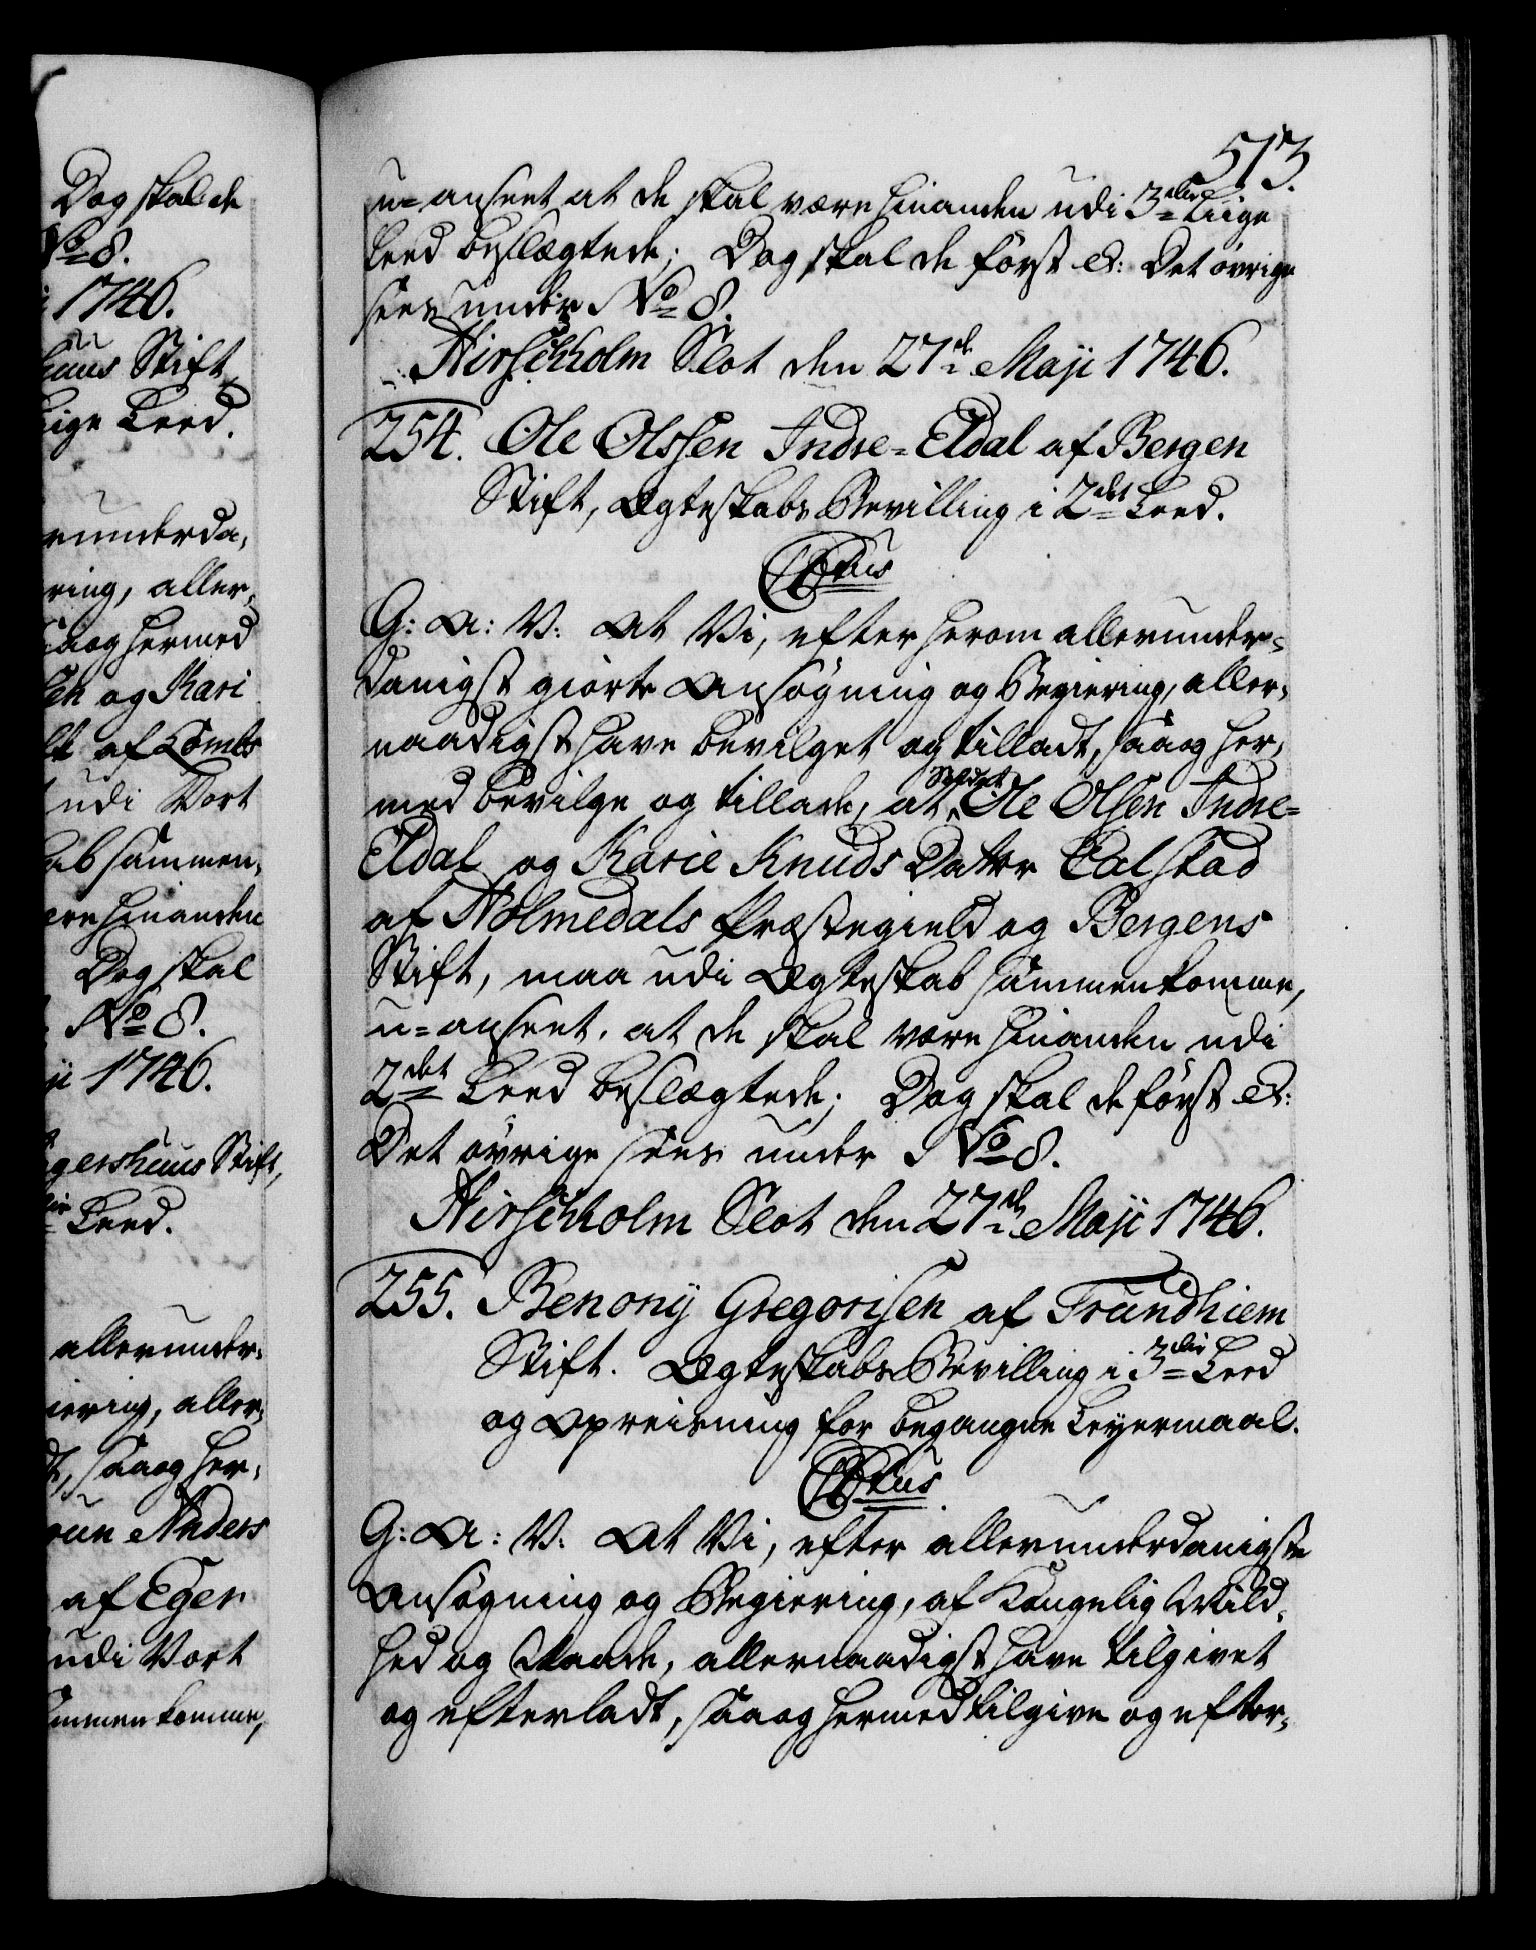 Dog skal de
No 8.
1746.
huus Stift
Liige Leed.
runderda,
ring, aller,
saa og hermed
sen og Kari
af Lombs
udi Vort
ab sammen,
ære hinanden
Dog skal
No 8.
ji 1746.
Agershuus Stift,
Leed.
allerunder,
iering, aller,
saa og her,
Anders
af Eger
udi Vort
ammen komme,
513.
u-anseet at de skal være hinanden udi 3die Liige
Leed beslægtede; Dog skal de først &: Det øvrige
sees under No 8.
Hirschholm Slot den 27de Maji 1746.
254. Ole Olssen Indre-Eldal af Bergen
Stift, Ægteskabs Bevilling i 2det Leed.
C5tus
G: A: V: At Vi, efter herom allerunder-
danigst giorte Ansøgning og Begiering, aller,
naadigst have bevilget og tilladt, saa og her,
med bevilge og tillade, at Soldat Ole Olsen Indre-
Eldal og Karie Knuds Datter Calstad
af Holmedals Præstegield og Bergens
Stift, maa udi Ægteskab sammenkomme,
u-anseet, at de skal være hinanden udi
2det Leed beslægtede; Dog skal de først &:
Det øvrige sees under No 8.
Hirschholm Slot den 27de Maji 1746.
255. Benony Gregorisen af Trundhiem
Stift. Ægteskabs Bevilling i 3die Leed
og Opreisning for begangne Leyermaal.
C5tus
G: A: V: At Vi, efter allerunderdanigste
Ansøgning og Begiering, af Kongelig Mild,
hed og Naade, allernaadigst have tilgivet
og efterladt, saa og hermed tilgive og efter,